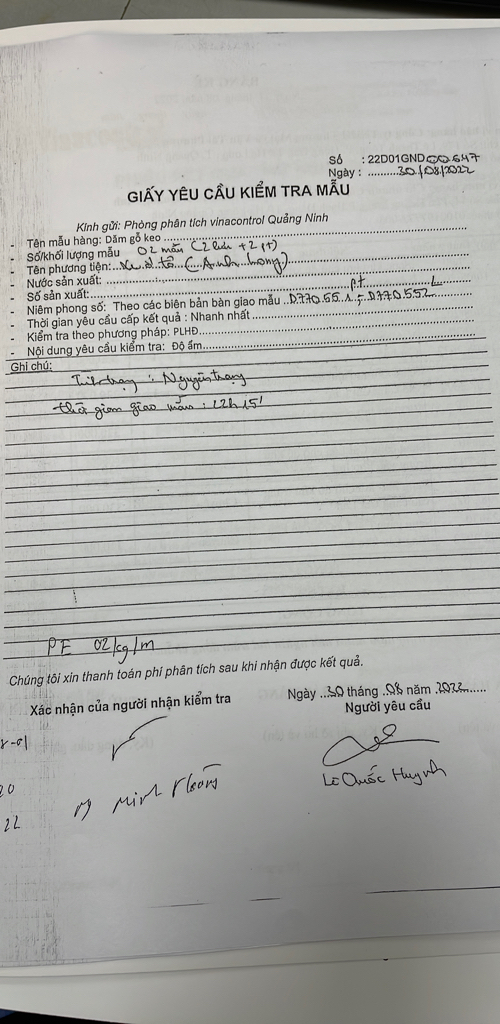 Số : 22D01GND00647
Ngày : .........30/08/2022
GIẤY YÊU CẦU KIỂM TRA MẪU
Kính gửi: Phòng phân tích vinacontrol Quảng Ninh
- Tên mẫu hàng: Dăm gỗ keo
- Số/khối lượng mẫu 02 mẫu (2 lưu + 2 pt)
- Tên phương tiện: Xe ô tô (Anh Long)
- Nước sản xuất:
- Số sản xuất:
pt L
- Niêm phong số: Theo các biên bản bàn giao mẫu ..D770551 ; D770552
- Thời gian yêu cầu cấp kết quả : Nhanh nhất
- Kiểm tra theo phương pháp: PLHD
- Nội dung yêu cầu kiểm tra: Độ ẩm
Ghi chú:
Tình trạng : Nguyên trạng
thời gian giao mẫu : 12h15'
PE 02/kg/m
Chúng tôi xin thanh toán phí phân tích sau khi nhận được kết quả.
Ngày ...30 tháng .08 năm .2022......
Xác nhận của người nhận kiểm tra
Người yêu cầu
20
22
Lê Quốc Huynh